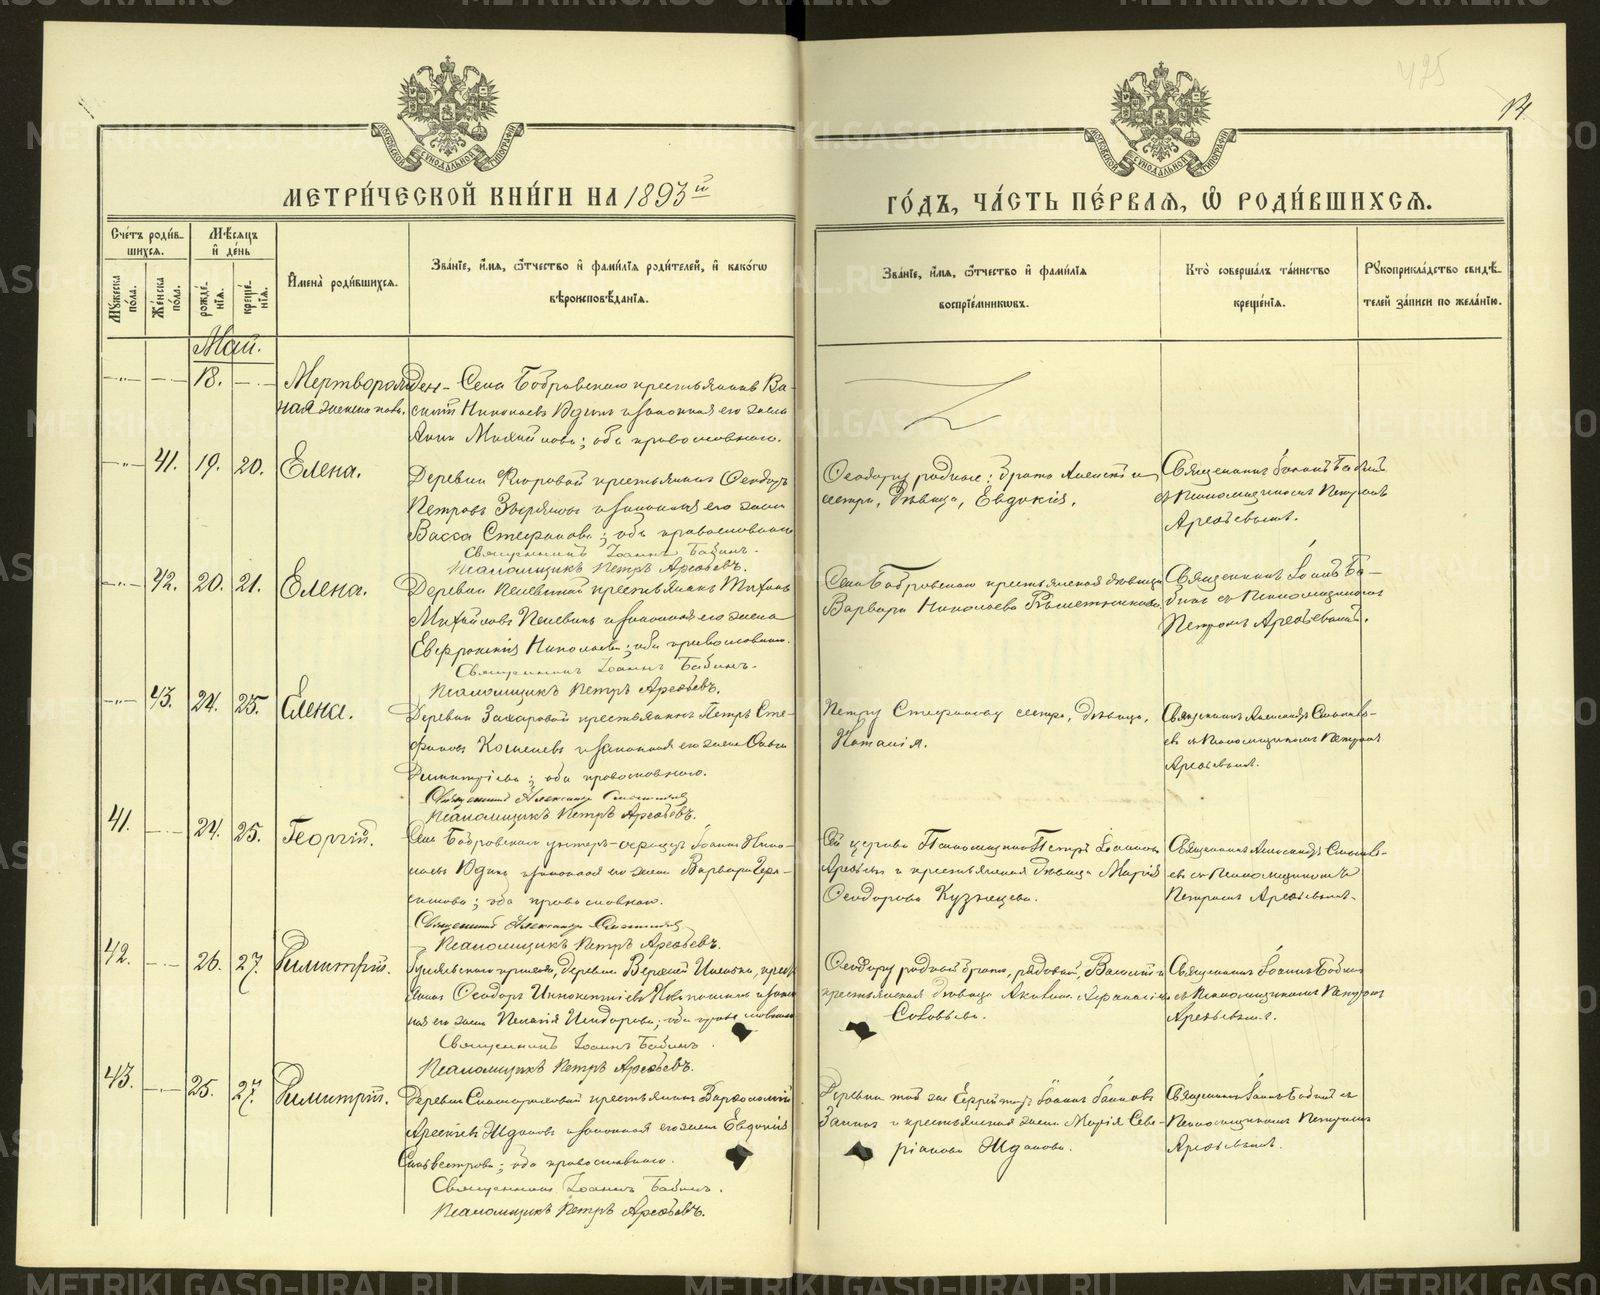 425
14
МОСКОВСКОЙ СѴНОДАЛЬНОЙ ТИПОГРАФІИ
МОСКОВСКОЙ СѴНОДАЛЬНОЙ ТИПОГРАФІИ
МЕТРИ́ЧЕСКОЙ КНИ́ГИ НА 1893й
ГО́ДЪ, ЧА́СТЬ ПЕ́РВАЯ, Ѽ РОДИ́ВШИХСЯ.
Сче́тъ роди́в-
шихся.
Мѣ́сяцъ
и҆ де́нь
Му́жеска по́ла.
Же́нска по́ла.
рожде́-нія.
креще́-нія.
И҆мена̀ роди́вшихся.
Зва́ніе, и҆́мя, ѻ҆́тчество и҆ фами́лія роди́телей, и҆ како́гѡ
вѣроисповѣ́данія.
Зва́ніе, и҆́мя, ѻ҆́тчество и҆ фами́лія
воспріе́мниковъ.
Кто̀ соверша́лъ та́инство
креще́нія.
Рукоприкла́дство свидѣ́-
телей за́писи по жела́нію.
Май.
18. Мертворожден-
ная женска пола.
Села Бобровскаго крестьянинъ Ва-
силій Николаевъ и законная его жена
Анна Михайлова; оба православнаго.
41. 19. 20. Елена.
Деревни крестьянинъ Ѳеодоръ
Петровъ Звѣревъ и законная его жена
Васса Стефанова; оба православнаго
Священникъ Іоаннъ Бабинъ.
Псаломщикъ Петръ Арефьевъ.
Ѳеодору родные: братъ Алексѣй и
сестра, дѣвица, Евдокія.
Священникъ Іоаннъ Бабинъ
съ Псаломщикомъ Петромъ
Арефьевымъ.
42. 20. 21. Елена.
Деревни крестьянинъ Тихонъ
Михайловъ и законная его жена
Евфросинія Николаева; оба православнаго.
Священникъ Іоаннъ Бабинъ.
Псаломщикъ Петръ Арефьевъ.
Села Бобровскаго крестьянская дѣвица
Варвара Николаева Рѣшетникова.
Священникъ Іоаннъ Ба-
бинъ съ Псаломщикомъ
Петромъ Арефьевымъ.
43. 24. 25. Елена.
Деревни Захаровой крестьянинъ Петръ Сте-
фановъ Кошелевъ и законная его жена Ольга
Димитріева; оба православнаго.
Священникъ Александръ
Псаломщикъ Петръ Арефьевъ.
Петру Стефанову сестра, дѣвица,
Наталія.
Священникъ Александръ
съ Псаломщикомъ Петромъ
Арефьевымъ.
41. 24. 25. Георгій.
Села Бобровскаго унтеръ-офицеръ Іоаннъ Нико-
лаевъ и законная его жена Варвара Гера-
симова; оба православнаго.
Священникъ Александръ
Псаломщикъ Петръ Арефьевъ.
Сей церкви Псаломщикъ Петръ Іоанновъ
Арефьевъ и крестьянская дѣвица Марія
Ѳеодорова Кузнецова.
Священникъ Александръ
съ Псаломщикомъ
Петромъ Арефьевымъ.
42. 26. 27. Димитрій.
прихода, Деревни Верхней крест-
янинъ Ѳеодоръ Иннокентіевъ и закон-
ная его жена Пелагія Исидорова; оба православнаго
Священникъ Іоаннъ Бабинъ.
Псаломщикъ Петръ Арефьевъ.
Ѳеодору родной братъ, рядовой, Василій и
крестьянская дѣвица Акилина Афанасіева
Соловьева.
Священникъ Іоаннъ Бабинъ
съ Псаломщикомъ Петромъ
Арефьевымъ.
43. 25. 27. Димитрій.
Деревни крестьянинъ Варѳоломей
Арсеніевъ Ждановъ и законная его жена Евдокія
Сильвестрова; оба православнаго.
Священникъ Іоаннъ Бабинъ.
Псаломщикъ Петръ Арефьевъ.
Деревни той же Іоаннъ Іоанновъ
и крестьянская жена Марія Севе-
ріанова Жданова.
Священникъ Іоаннъ Бабинъ съ
Псаломщикомъ Петромъ
Арефьевымъ.
METRIKI.GASO-URAL.RU